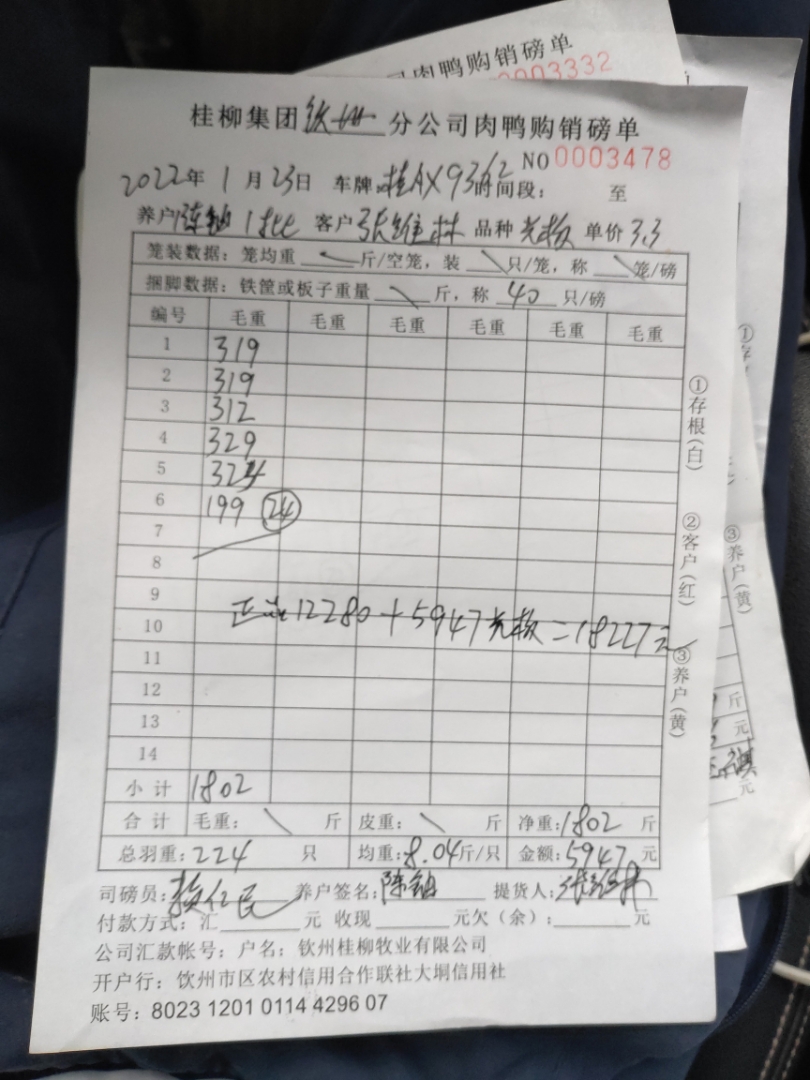 司肉鸭购销磅单
0003332
桂柳集团钦州分公司肉鸭购销磅单
NO 0003478
2022年 1 月 23日 车牌: 桂AX93 时间段: 至
养户 陈铀 1批 客户 张维林 品种 单价 3.3
笼装数据: 笼均重 斤/空笼, 装 只/笼, 称 笼/磅
捆脚数据: 铁筐或板子重量 斤, 称 40 只/磅
编号 毛重 毛重 毛重 毛重 毛重 毛重
1 319
2 319
3 312
4 329
5 324
6 199 24
7
8
9
12280+5947 =18227元
10
11
12
13
14
小计 1802
合计 毛重: 斤 皮重: 斤 净重: 1802 斤
总羽重: 224 只 均重: 8.04斤/只 金额: 5947 元
司磅员: 养户签名: 陈铀 提货人: 张维林
付款方式: 汇 元 收现 元欠(余): 元
公司汇款帐号: 户名: 钦州桂柳牧业有限公司
开户行: 饮州市区农村信用合作联社大垌信用社
账号: 8023 1201 0114 4296 07
①存根(白)
②客户(红)
③养户(黄)
①存
③养户(黄)
斤
元
元